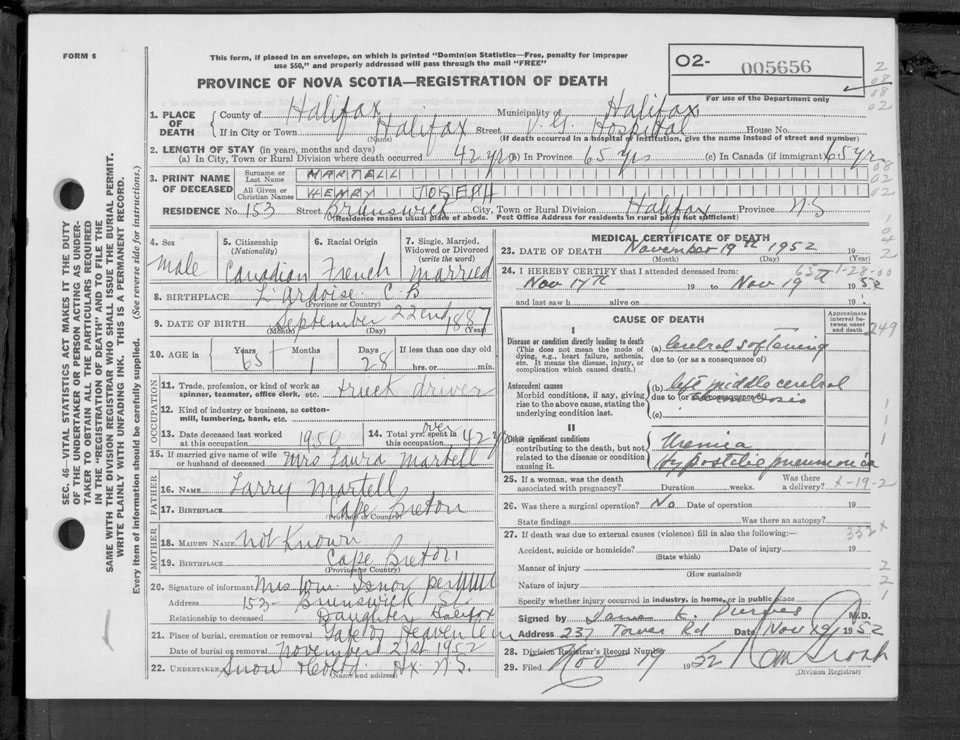 FORM 6
This form, if placed in an envelope, on which is printed "Dominion Statistics—Free, penalty for improper
use $50," and properly addressed will pass through the mail "FREE"
PROVINCE OF NOVA SCOTIA—REGISTRATION OF DEATH
O2- 005656
For use of the Department only
2
08
08
02
1. PLACE OF DEATH
County of Halifax Municipality of Halifax
If in City or Town Halifax Street V.G. Hospital House No.
(Name) (If death occurred in a hospital or institution, give the name instead of street and number)
2. LENGTH OF STAY (in years, months and days)
(a) In City, Town or Rural Division where death occurred 42 yrs (b) In Province 65 yrs (c) In Canada (if immigrant) 65 yr
3. PRINT NAME OF DECEASED
Surname or Last Name MARTELL
All Given or Christian Names HENRY JOSEPH
08
02
02
RESIDENCE No. 153 Street Brunswick City, Town or Rural Division Halifax Province N.S
(Residence means usual place of abode. Post Office Address for residents in rural parts not sufficient)
4. Sex male
5. Citizenship (Nationality) Canadian
6. Racial Origin French
7. Single, Married, Widowed or Divorced (write the word) married
8. BIRTHPLACE L'Ardoise C.B
(Province or Country)
9. DATE OF BIRTH September 22nd 1887
(Month) (Day) (Year)
10. AGE in Years 65 Months 1 Days 28 If less than one day old
hrs. or min.
OCCUPATION
11. Trade, profession, or kind of work as
spinner, teamster, office clerk, etc. truck driver
12. Kind of industry or business, as cotton-
mill, lumbering, bank, etc.
13. Date deceased last worked
at this occupation 1950
14. Total yrs. spent in
this occupation over 42 yrs
15. If married give name of wife
or husband of deceased Mrs Laura Martell
FATHER
16. NAME Larry Martell
17. BIRTHPLACE Cape Breton
(Province or Country)
MOTHER
18. MAIDEN NAME not known
19. BIRTHPLACE Cape Breton
(Province or Country)
20. Signature of informant Mrs Wm.
Address 153- Brunswick St.
Relationship to deceased Daughter Halifax
21. Place of burial, cremation or removal Gate of Heaven Cem
Date of burial or removal November 21st 1952
22. UNDERTAKER Snow Hx. N.S.
(Name and address)
MEDICAL CERTIFICATE OF DEATH
23. DATE OF DEATH November 19th 1952 19
(Month) (Day) (Year)
24. I HEREBY CERTIFY that I attended deceased from: 65 1-28-00
Nov 17th 19 to Nov 19th 1952
and last saw h alive on 19
CAUSE OF DEATH
Approximate interval between onset and death
249
I
Disease or condition directly leading to death
(This does not mean the mode of
dying, e.g., heart failure, asthenia,
etc. It means the disease, injury, or
complication which caused death.)
(a) Cerebral softening
due to (or as a consequence of)
Antecedent causes
Morbid conditions, if any, giving
rise to the above cause, stating the
underlying condition last.
(b) left middle cerebral
due to (or as a consequence of)
(c)
II
Other significant conditions
contributing to the death, but not
related to the disease or condition
causing it.
Uremia
Hypostatic pneumonia
25. If a woman, was the death
associated with pregnancy? Duration weeks. Was there
a delivery? x-19-2
26. Was there a surgical operation? No Date of operation 19
State findings Was there an autopsy?
27. If death was due to external causes (violence) fill in also the following:— 332 x
Accident, suicide or homicide? Date of injury 19
(State which)
Manner of injury
(How sustained)
Nature of injury
Specify whether injury occurred in industry, in home, or in public place
Signed by M.D.
Address 237 Tower Rd Date Nov 19 1952
28. Division Registrar's Record Number
29. Filed Nov 19 1952
(Division Registrar)
SEC. 46—VITAL STATISTICS ACT MAKES IT THE DUTY
OF THE UNDERTAKER OR PERSON ACTING AS UNDER-
TAKER TO OBTAIN ALL THE PARTICULARS REQUIRED
IN THE "REGISTRATION OF DEATH" AND TO FILE THE
SAME WITH THE DIVISION REGISTRAR WHO SHALL ISSUE THE BURIAL PERMIT.
WRITE PLAINLY WITH UNFADING INK. THIS IS A PERMANENT RECORD.
Every item of information should be carefully supplied. (See reverse side for instructions.)